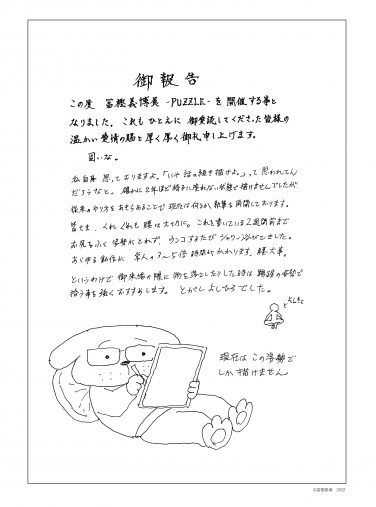 御報告
この度 冨樫義博展 -PUZZLE- を開催する事と
なりました。これもひとえに御愛読してくださった皆様の
温かい愛情の賜と厚く厚く御礼申し上げます。
固いな。
私自身思っております。「いや話の続き描けよ。」って思われてん
だろうなと。確かに2年ほど椅子に座れない状態で描けませんでしたが、
従来のやり方をあきらめることで現在は何とか執筆を再開しております。
皆さま、くれぐれも腰は大切に。これを書いている2週間前まで
お尻もふく姿勢がとれず、ウンコするたびシャワー浴びてました。
あらゆる動作が、常人の3〜5倍時間がかかります。腰大事。
というわけで御来場の際に物を落としたりした時は蹲踞の姿勢で
拾う事を強くおすすめします。とがしよしひろでした。
現在はこの姿勢で
しか描けません
©冨樫義博 2022